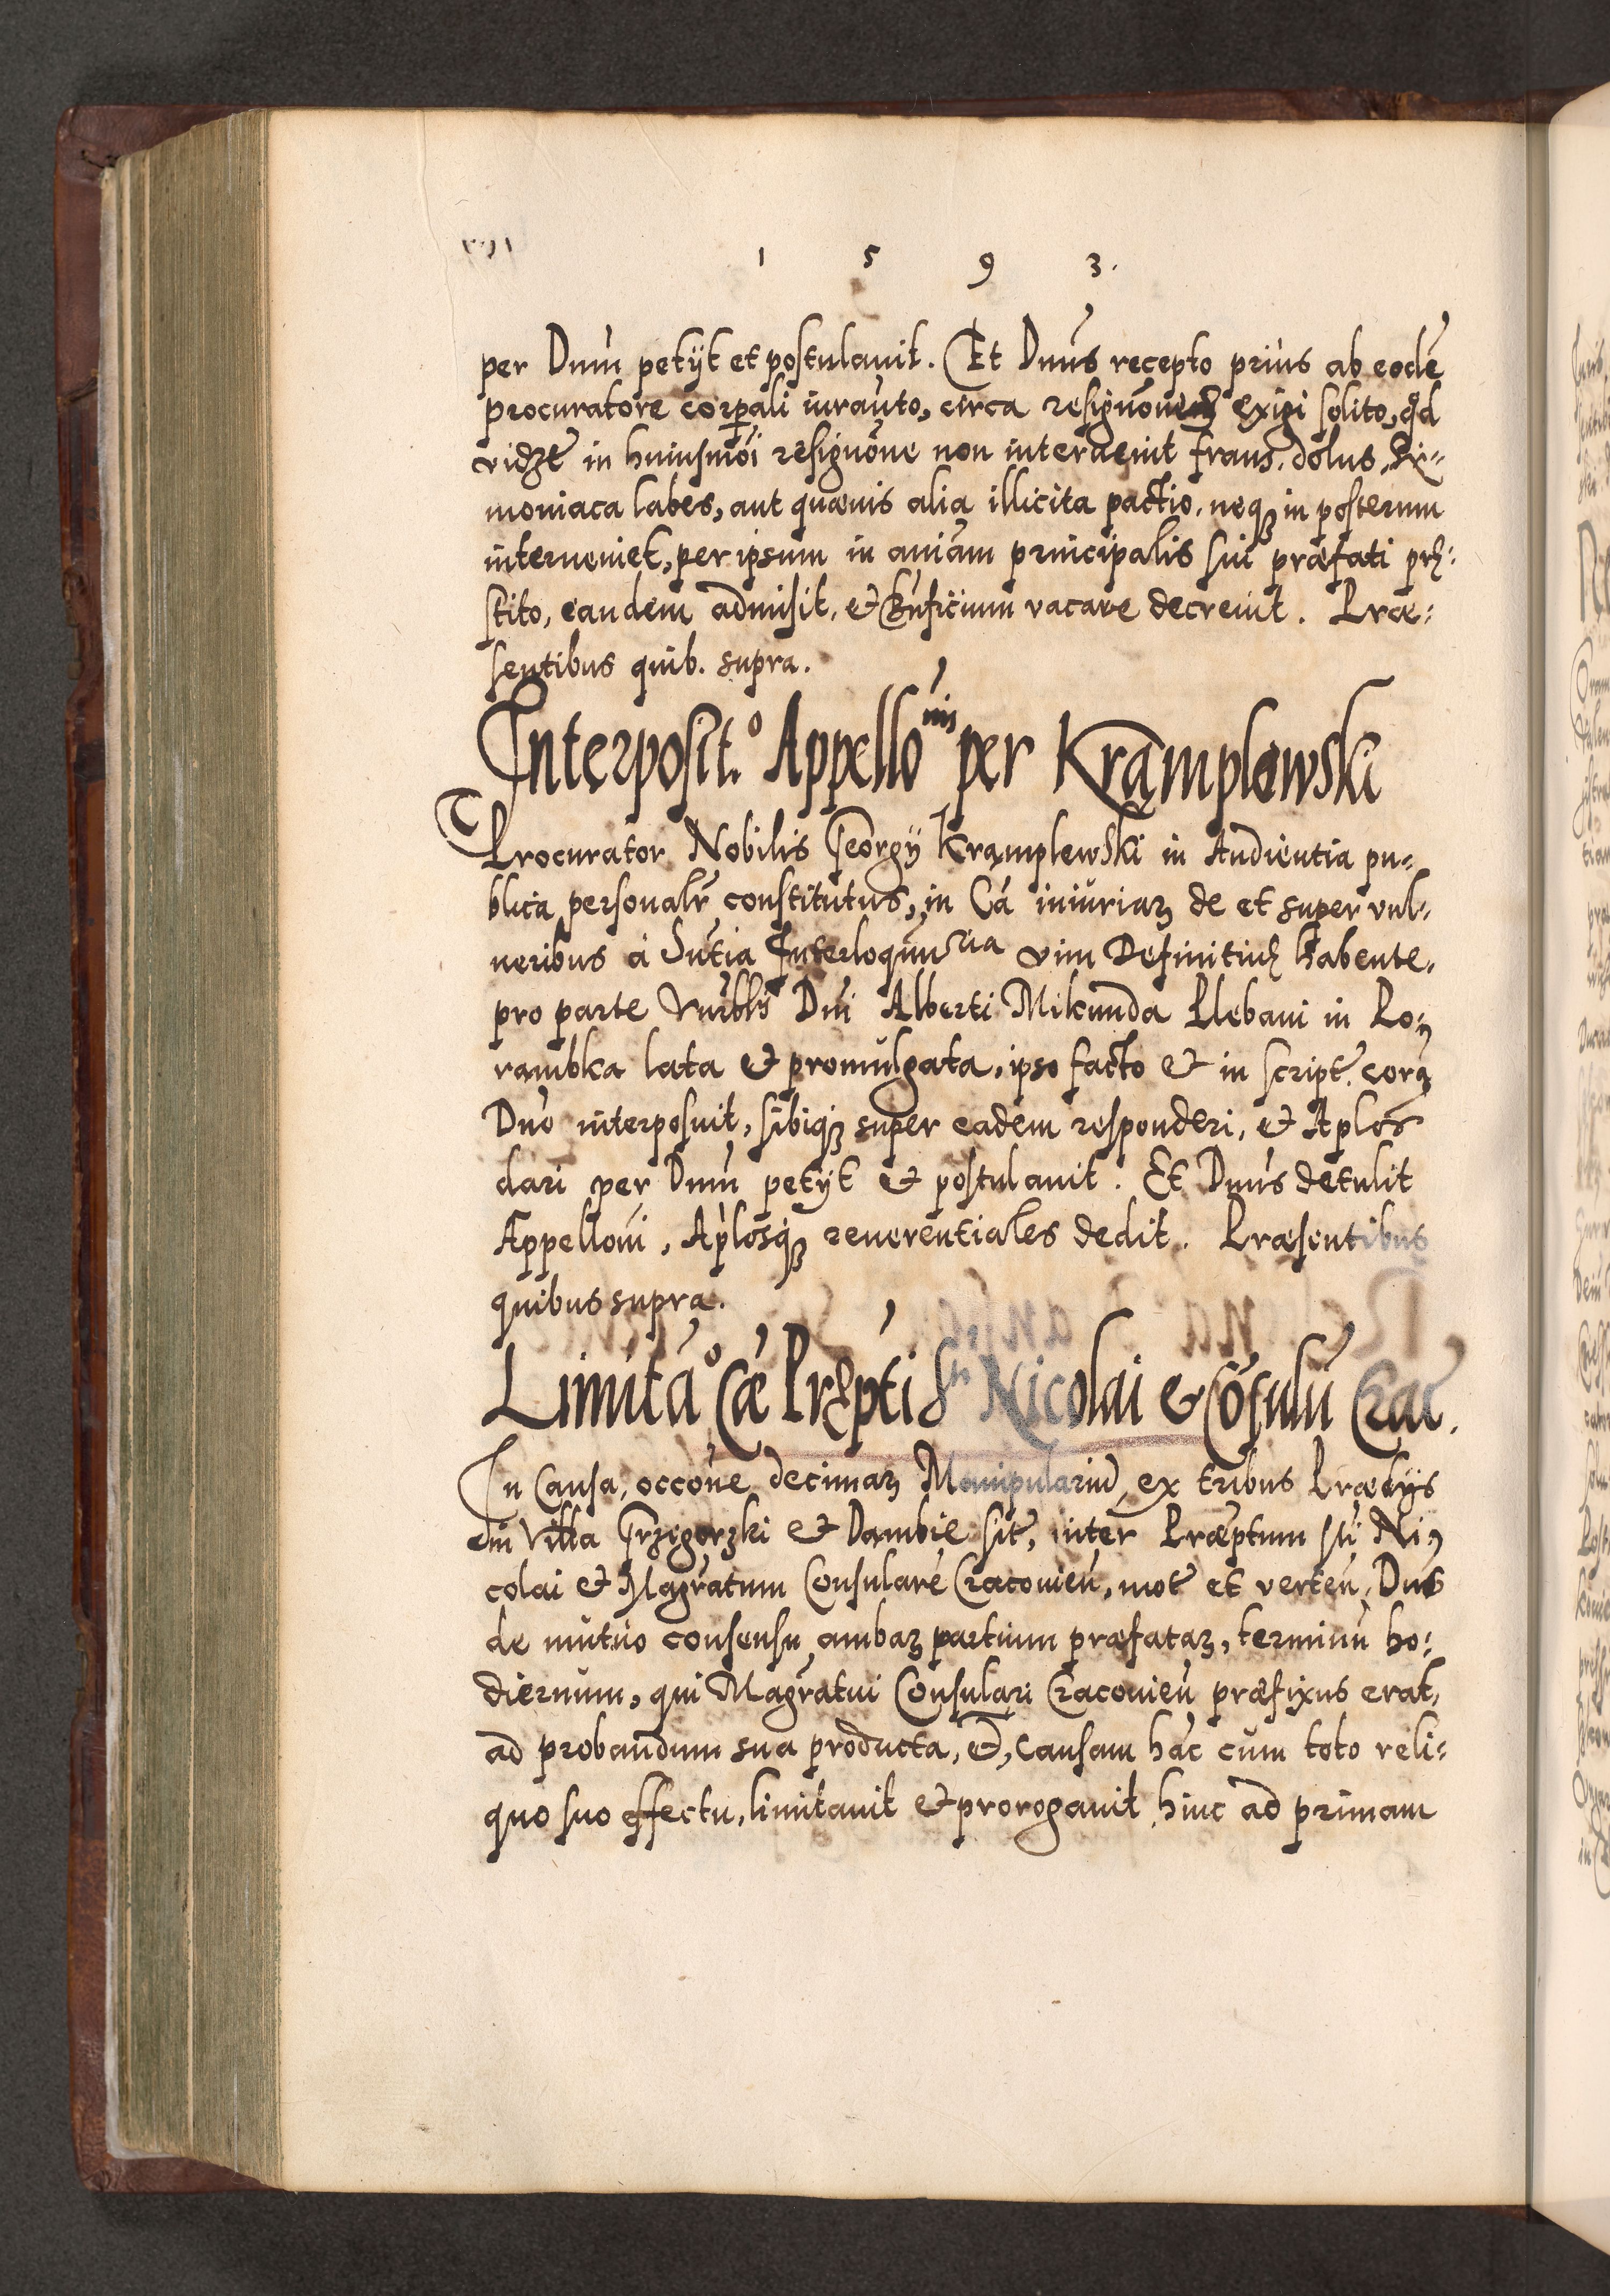 1 5 9 3.
per Dnūm petijt et postulauit. Et Dnūs recepto prius ab eodē
procuratore corpāli iurāuto, circa resignōnem exigi solito, qd
vidzt in huiusmōi resignōne non interuenit fraus, dolus, Si-
moniaca labes, aut quævis alia illicita pactio, neqꝫ in posterum
interueniet, per ipsum in aniām principalis sui præfati prę-
stito, eandem admisit, et Bnficium vacare decreuit. Præ-
sentibus quib. supra.
Interposit.º Appellōnis per Krąmplewski
Procurator Nobilis Georgij Krąmplewski in Audientia pu-
blica personalr constitutus, in Cā iniuriaꝝ de et super vul-
neribus à Sn̄tia Interloqūuria vim Definitiuę habente,
pro parte Vnrblīs Dn̄i Alberti Mikunda Plebani in Po-
rambka lata et promulgata, ipso facto et in script. corą
Dn̄o interposuit, sibiqꝫ super eadem responderi, et Aplos
dari per Dnūm petijt et postulauit. Et Dnūs detulit
Appellōni, Ap̄losqꝫ reuerentiales dedit. Præsentibus
quibus supra.
Limitāº Cǣ Pręptī Sti Nicolai et Cōsulū Crac.
In Causa, occōne decimaꝝ Manipulariū, ex tribus Prædijs
in Villa Grzegorzki et Dambie sit, inter Præptum Sti Ni-
colai et Magrātum Consularē Cracouień, mot et verteń, Dnūs
de mutuo consensu ambaꝝ partium præfataꝝ, terminū ho-
diernum, qui Magrātui Consulari Cracouień præfixus erat,
ad probandum sua producta, et, causam hāc cum toto reli-
quo suo effectu, limitauit et prorogauit hinc ad primam